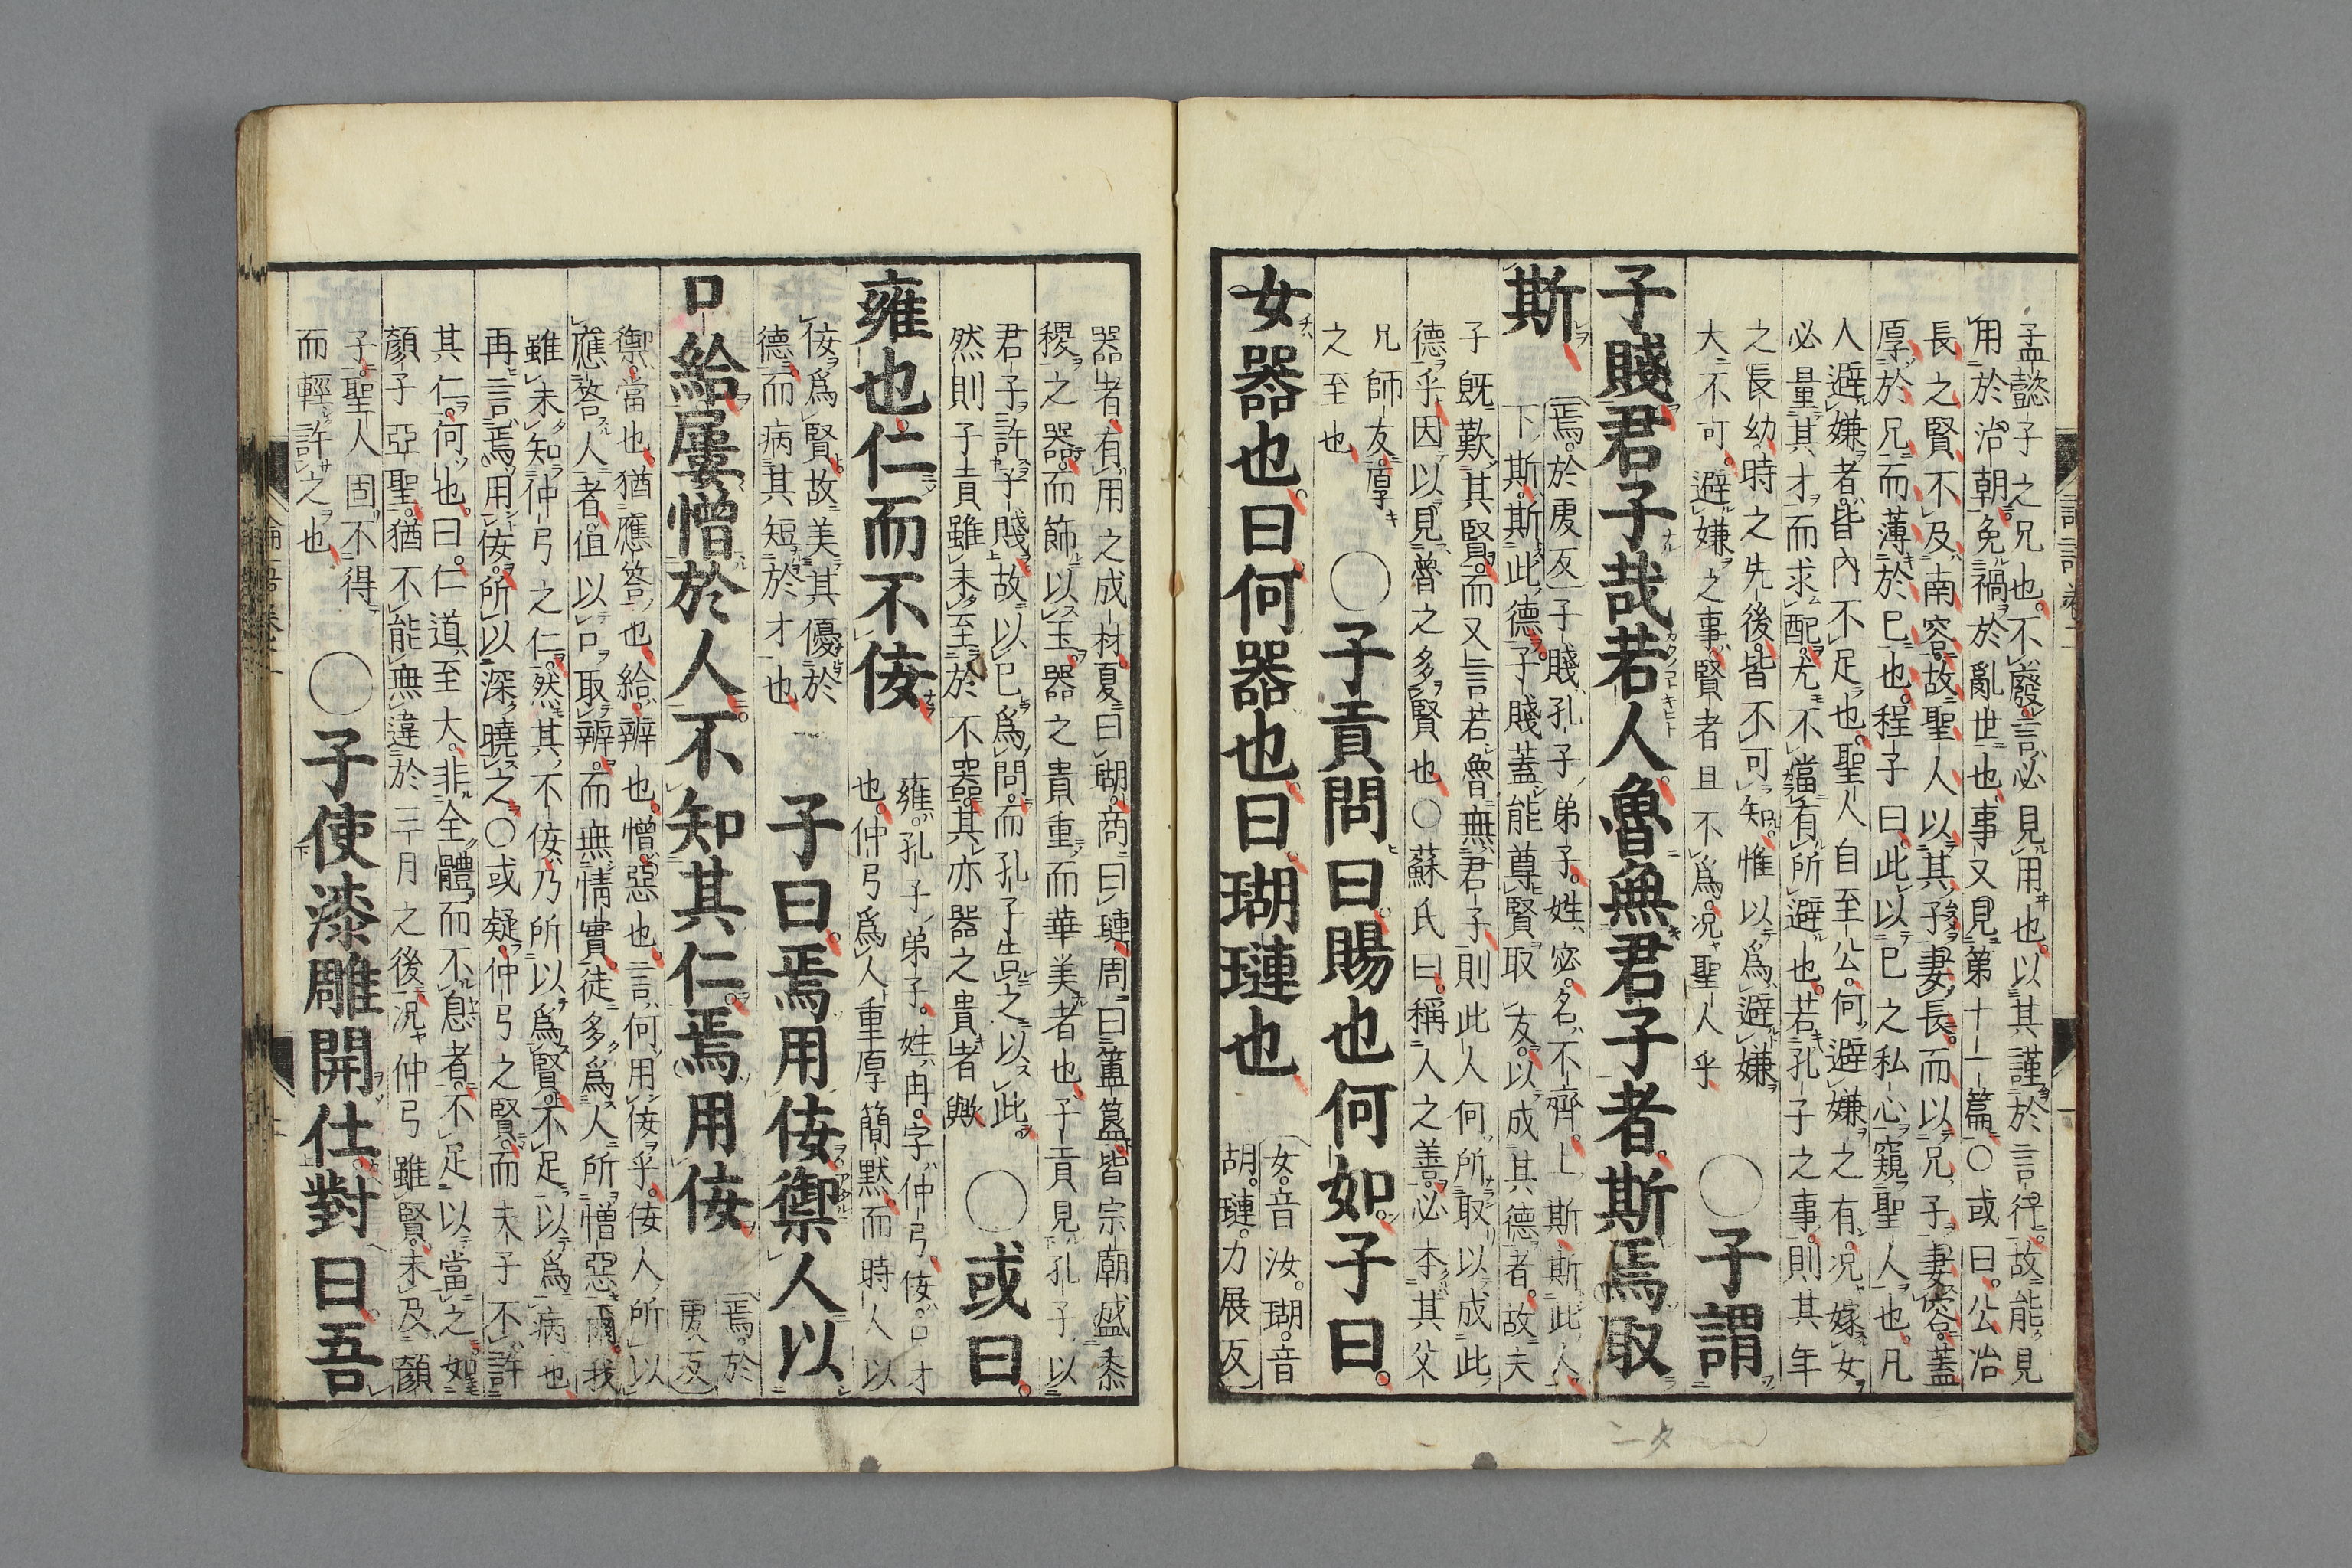 孟懿子之兄也。不廢言必見用也。以其謹於言行。故能見
用於治朝免禍於亂世也。事又見第十一篇。○或曰。公冶
長之賢不及南容。故聖人以其子妻長。而以兄子妻容。蓋
厚於兄而薄於己也。程子曰。此以己之私心窺聖人也。凡
人避嫌者。皆內不足也。聖人自至公。何避嫌之有。况嫁女
必量其才而求配。尤不當有所避也。若孔子之事。則其年
之長幼。時之先後。皆不可知。惟以爲避嫌
大不可。避嫌之事。賢者且不爲。况聖人乎
○子謂
子賤君子哉若人魯無君子者。斯焉取
斯
焉。於虔反子賤孔子弟子。姓宓。名不齊。上斯斯此人
下斯。斯此德。子賤蓋能尊賢取友。以成其德者。故夫
子旣歎其賢。而又言若魯無君子則此人何所取以成此
德乎。因以見魯之多賢也○蘇氏曰。稱人之善。必本其父
兄師友。厚
之至也
○子貢問曰賜也何如。子曰。
女器也。曰何器也。曰瑚璉也
女。音汝。瑚。音
胡。璉。力展反
器者。有用之成材。夏曰瑚。商曰璉。周曰簠簋。皆宗廟盛黍
稷之器。而飾以玉。器之貴重而華美者也。子貢見孔子以
君子許子賤。故以己爲問。而孔子告之以此。
然則子貢雖未至於不器。其亦器之貴者歟
○或曰。
雍也仁而不佞
雍。孔子弟子。姓冉。字仲弓。佞。口才
也。仲弓爲人重厚簡默。而時人以
佞爲賢。故美其優於
德。而病其短於才也
子曰。焉用佞。禦人以
口給屢憎於人。不知其仁。焉用佞
焉。於
虔反
禦。當也。猶應答也。給。辨也。憎。惡也。言何用佞乎。佞人所以
應答人者。但以口取辨。而無情實。徒多爲人所憎惡爾。我
雖未知仲弓之仁。然其不佞乃所以爲賢。不足以爲病也
再言焉用佞。所以深曉之○或疑。仲弓之賢。而夫子不許
其仁。何也。曰。仁道至大。非全體而不息者。不足以當之。如
顏子亞聖。猶不能無違於三月之後。况仲弓雖賢。未及顏
子。聖人固不得
而輕許之也
○子使漆雕開仕。對曰。吾